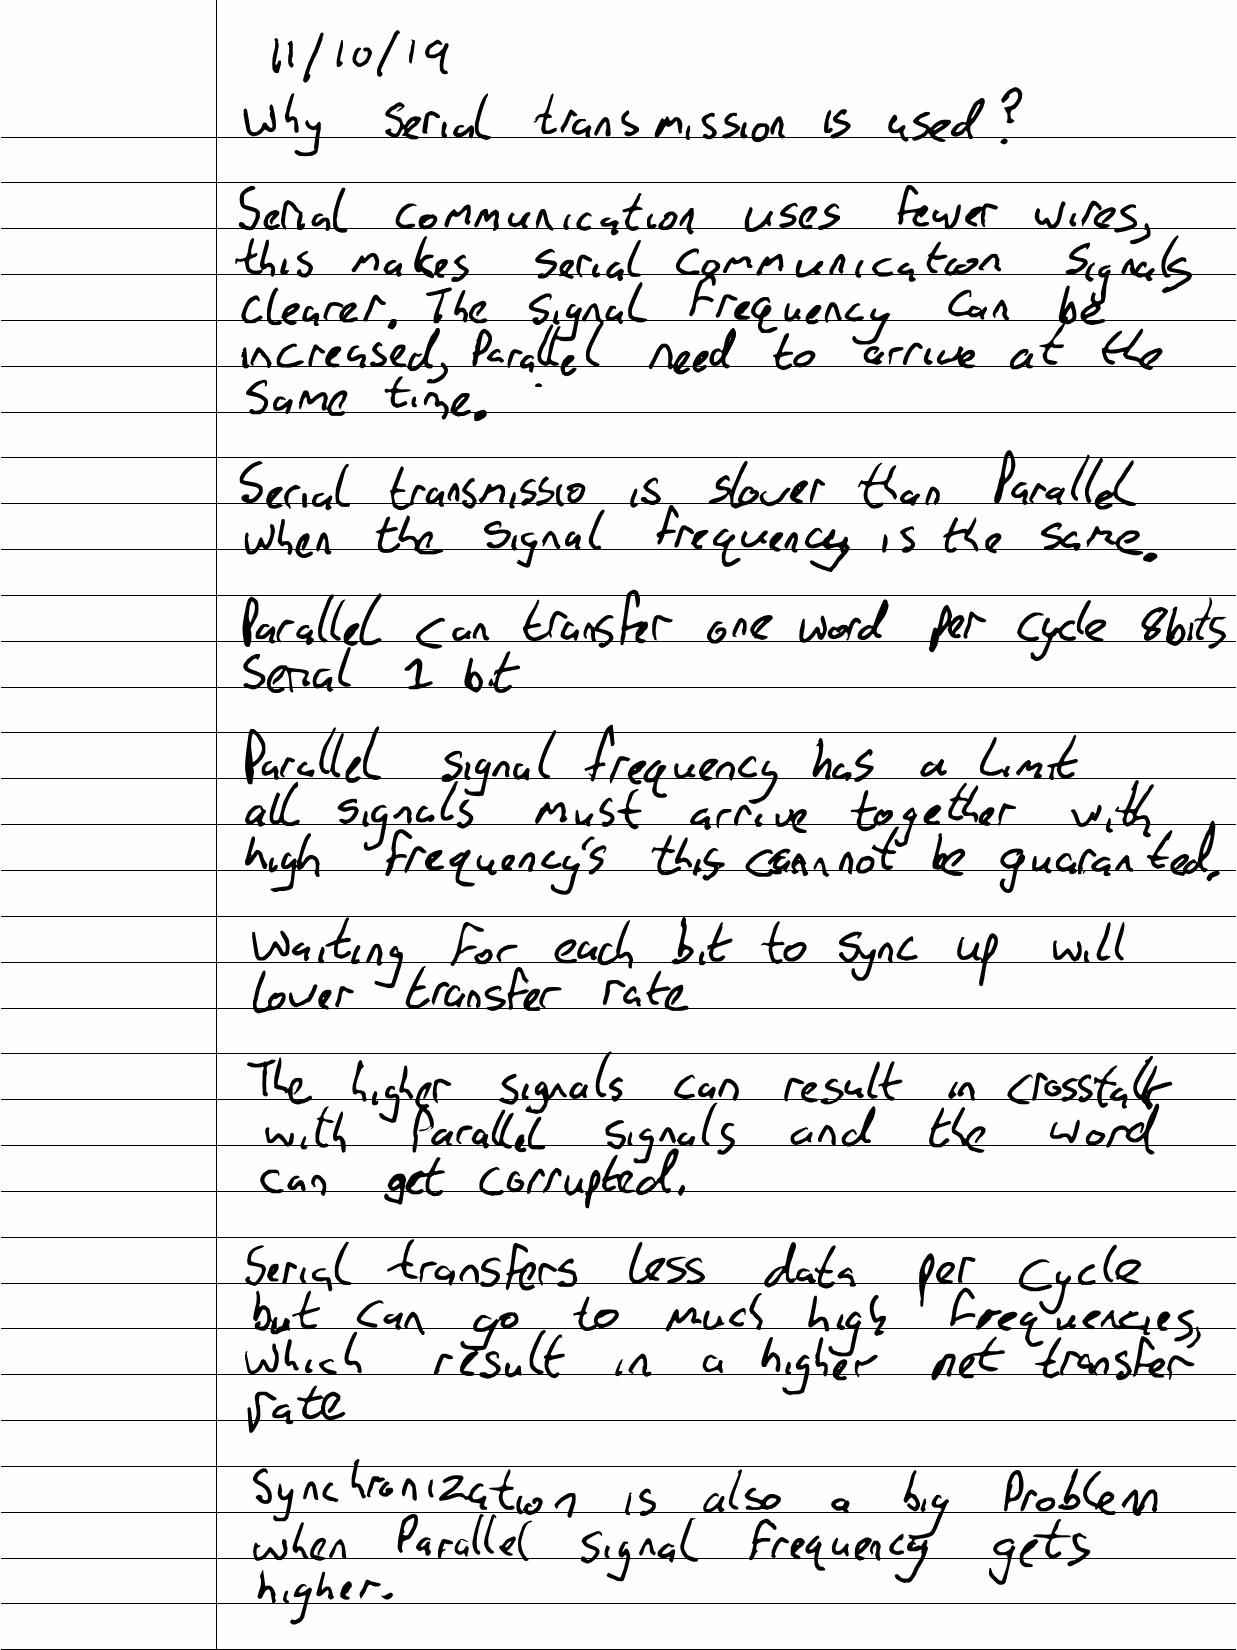 11/10/19
Why serial transmission is used?
Serial communication uses fewer wires,
this makes serial communication signals
clearer. The signal frequency can be
increased, Parallel need to arrive at the
same time.
Serial transmissio is slower than Parallel
when the signal frequency is the same.
Parallel can transfer one word per cycle 8bits
Serial 1 bit
Parallel signal frequency has a limit
all signals must arrive together with
high frequency's this cannot be guaranted.
Waiting for each bit to sync up will
lower transfer rate
The higher signals can result in crosstalk
with Parallel signals and the word
can get corrupted.
Serial transfers less data per cycle
but can go to much high frequencies,
which result in a higher net transfer
rate
Synchronization is also a big Problem
when Parallel signal frequency gets
higher.